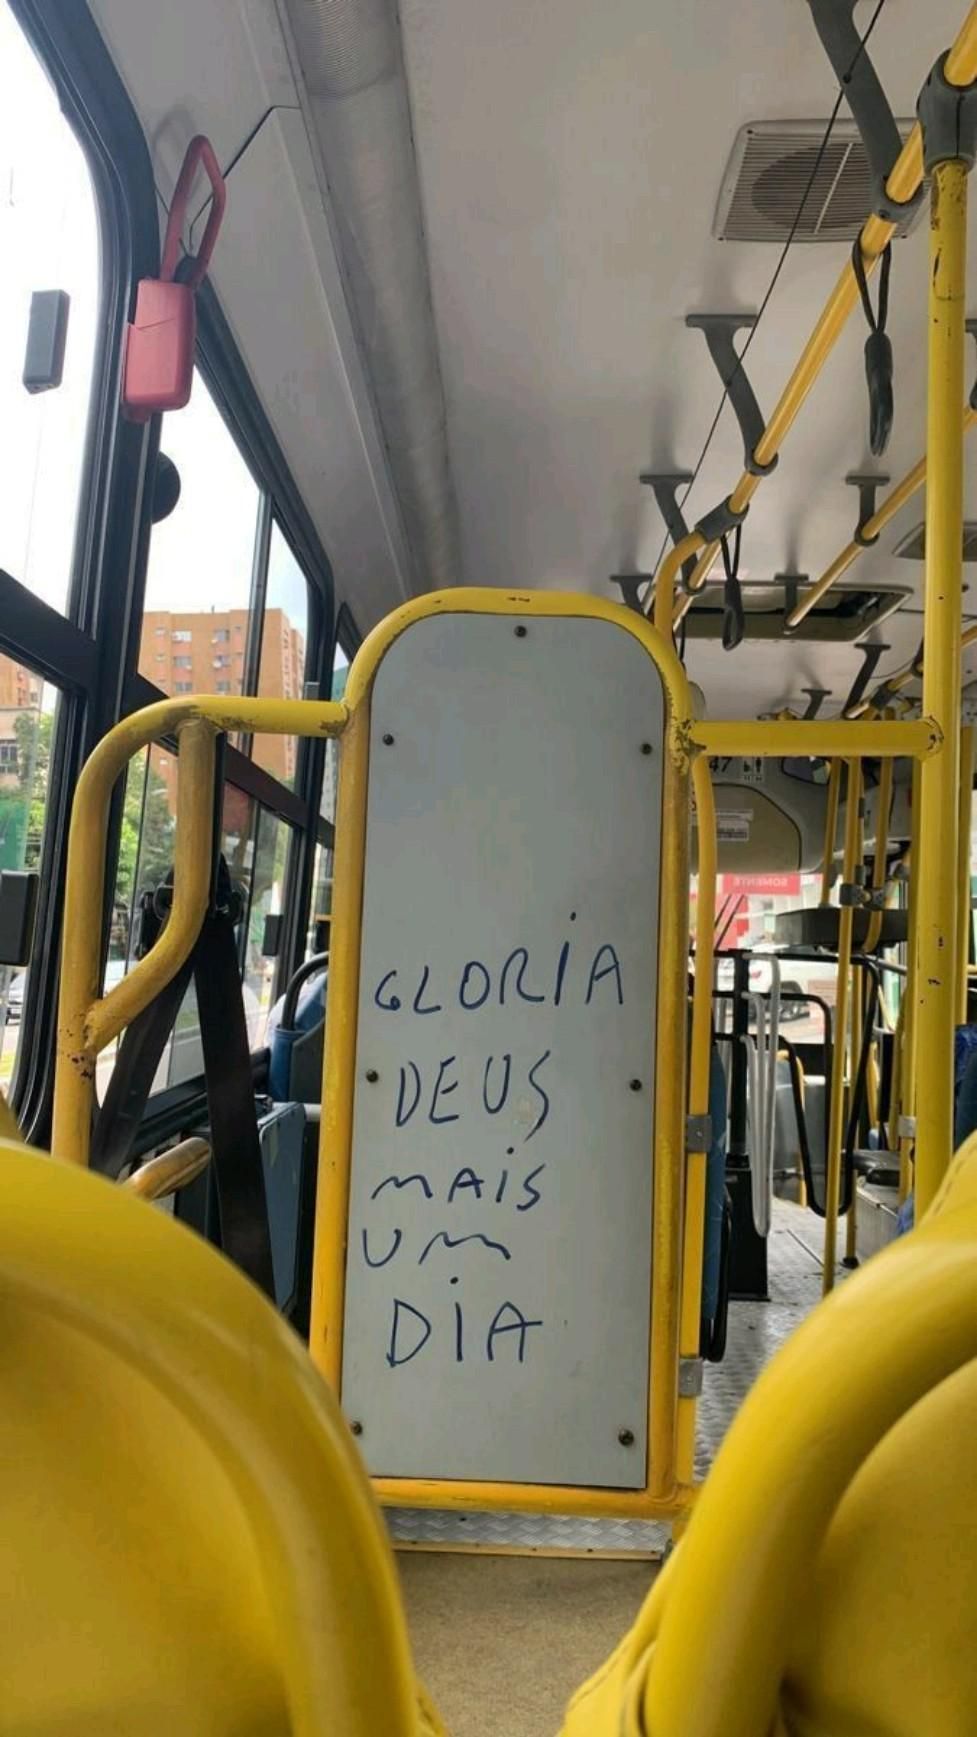 47
SOMENTE
GLORiA
DEUS
MAiS
UM
DiA